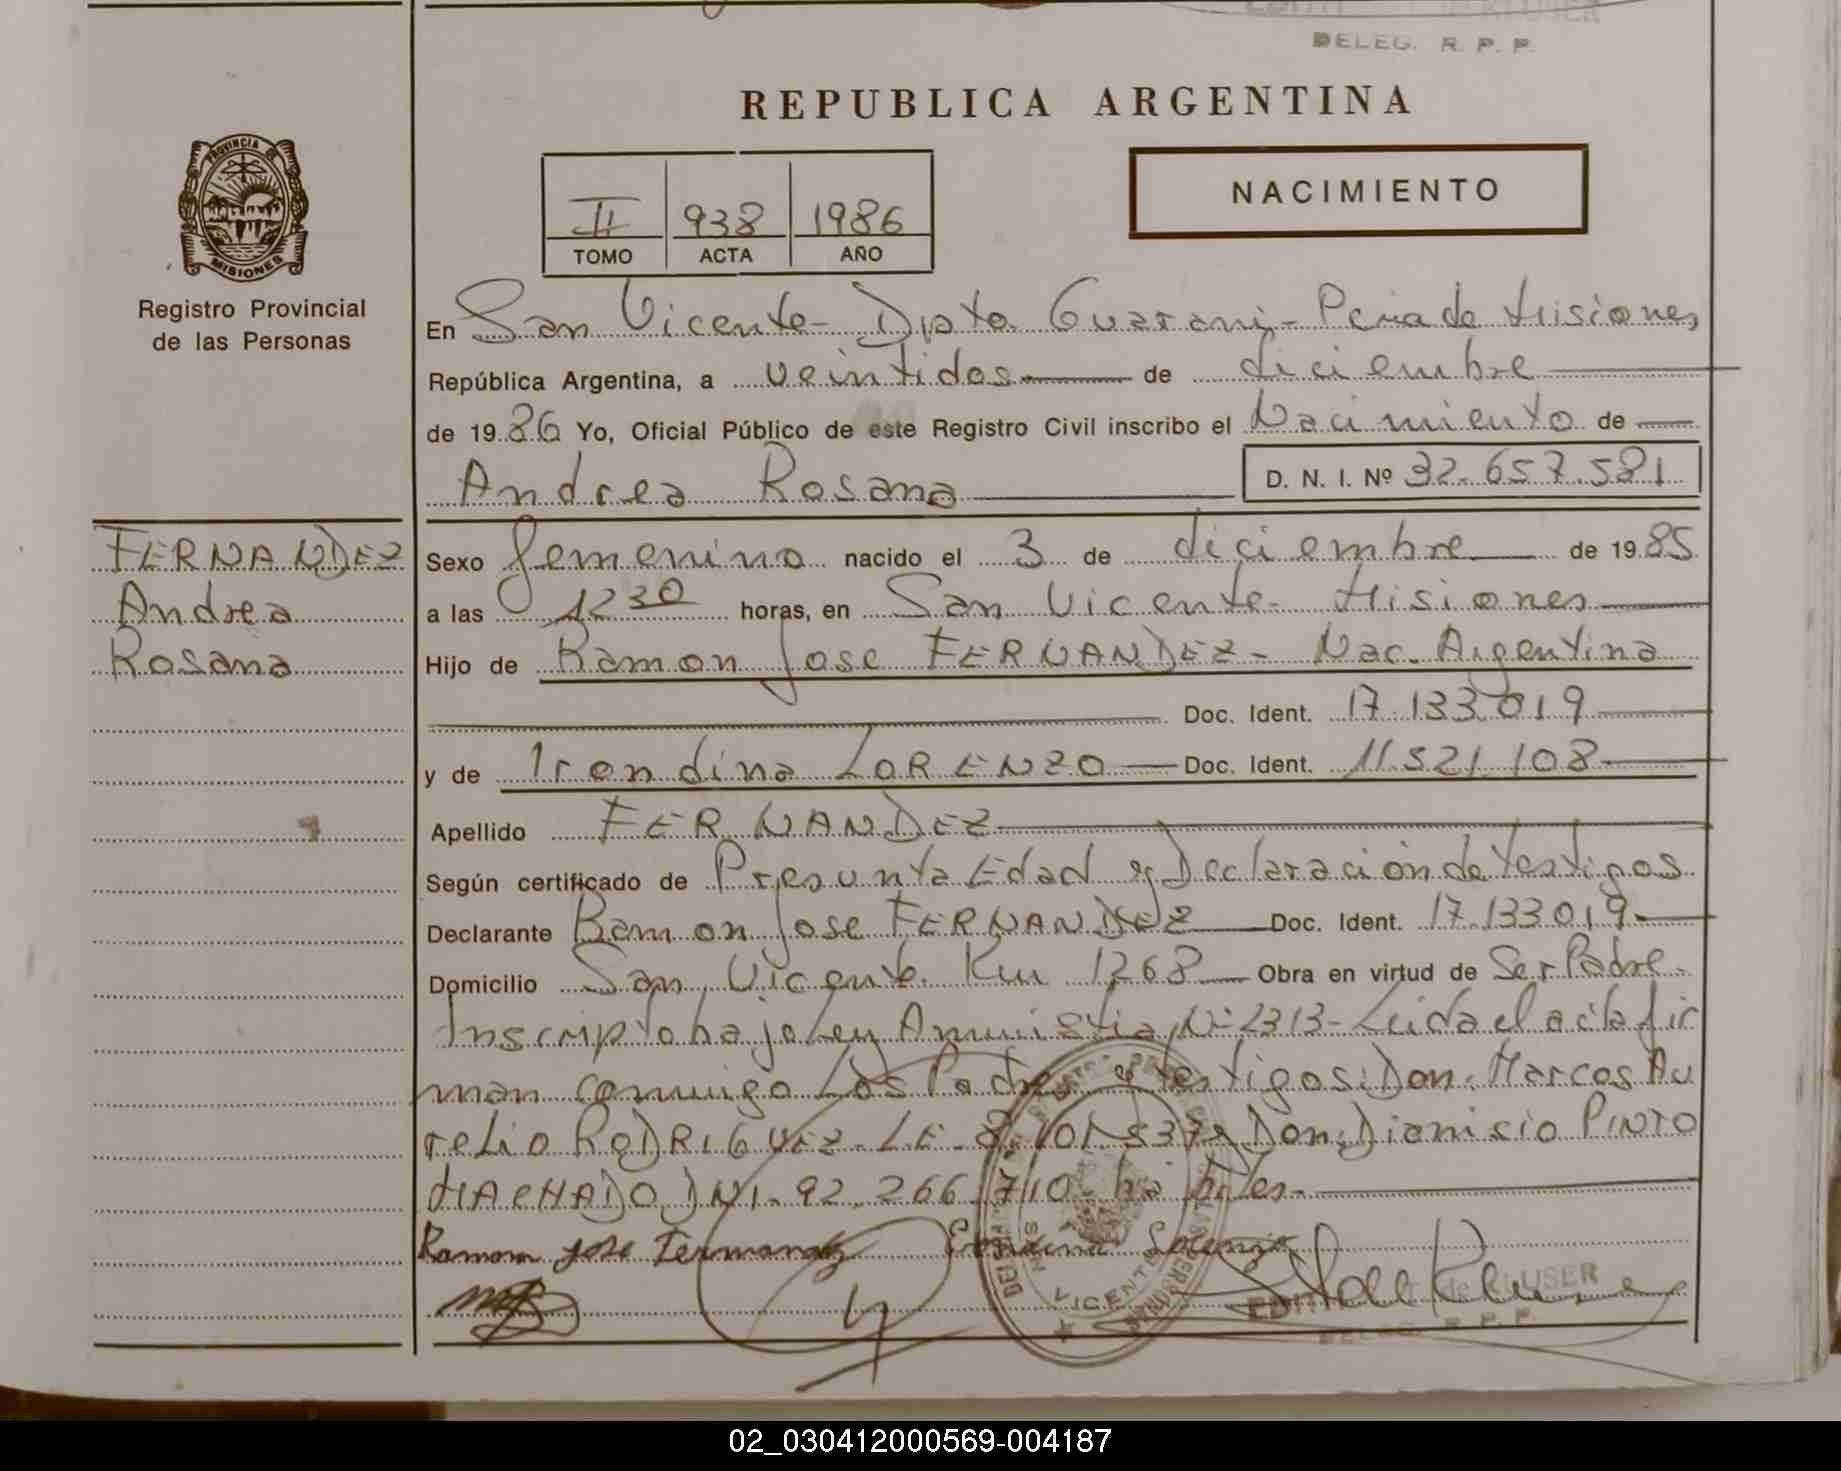 DELEG. R. P. P.
REPUBLICA ARGENTINA
NACIMIENTO
II 938 1986
TOMO ACTA AÑO
PROVINCIA DE
MISIONES
Registro Provincial
de las Personas
En San Vicente - Dpto Guarani - Pcia de Misiones
República Argentina, a veintidos de diciembre
de 1986 Yo, Oficial Público de este Registro Civil inscribo el Nacimiento de
Andrea Rosana D. N. I. Nº 32.657.581
FERNANDEZ
Andrea
Rosana
Sexo femenino nacido el 3 de diciembre de 1985
a las 12 30 horas, en San Vicente - Misiones
Hijo de Ramon Jose FERNANDEZ - Nac. Argentina
Doc. Ident. 17.133.019
y de Irondina LORENZO Doc. Ident. 11.521.108
Apellido FERNANDEZ
Según certificado de Presunta Edad y Declaración de testigos
Declarante Ramon Jose FERNANDEZ Doc. Ident. 17.133.019
Domicilio San Vicente Km 1268 Obra en virtud de Ser Padre -
Inscripto bajo ley Amnistia Nº 2313 - Leida el acta fir
man conmigo Los Padres y testigos: Don. Marcos Au
relio RODRIGUEZ - LE - y Don. Dionisio PINTO
MACHADO DNI - 92.266.710 - habiles -
Ramon Jose Fernandez Lorenzo
VICENTE
KLUSER
DELEG. R. P. P.
02_030412000569-004187